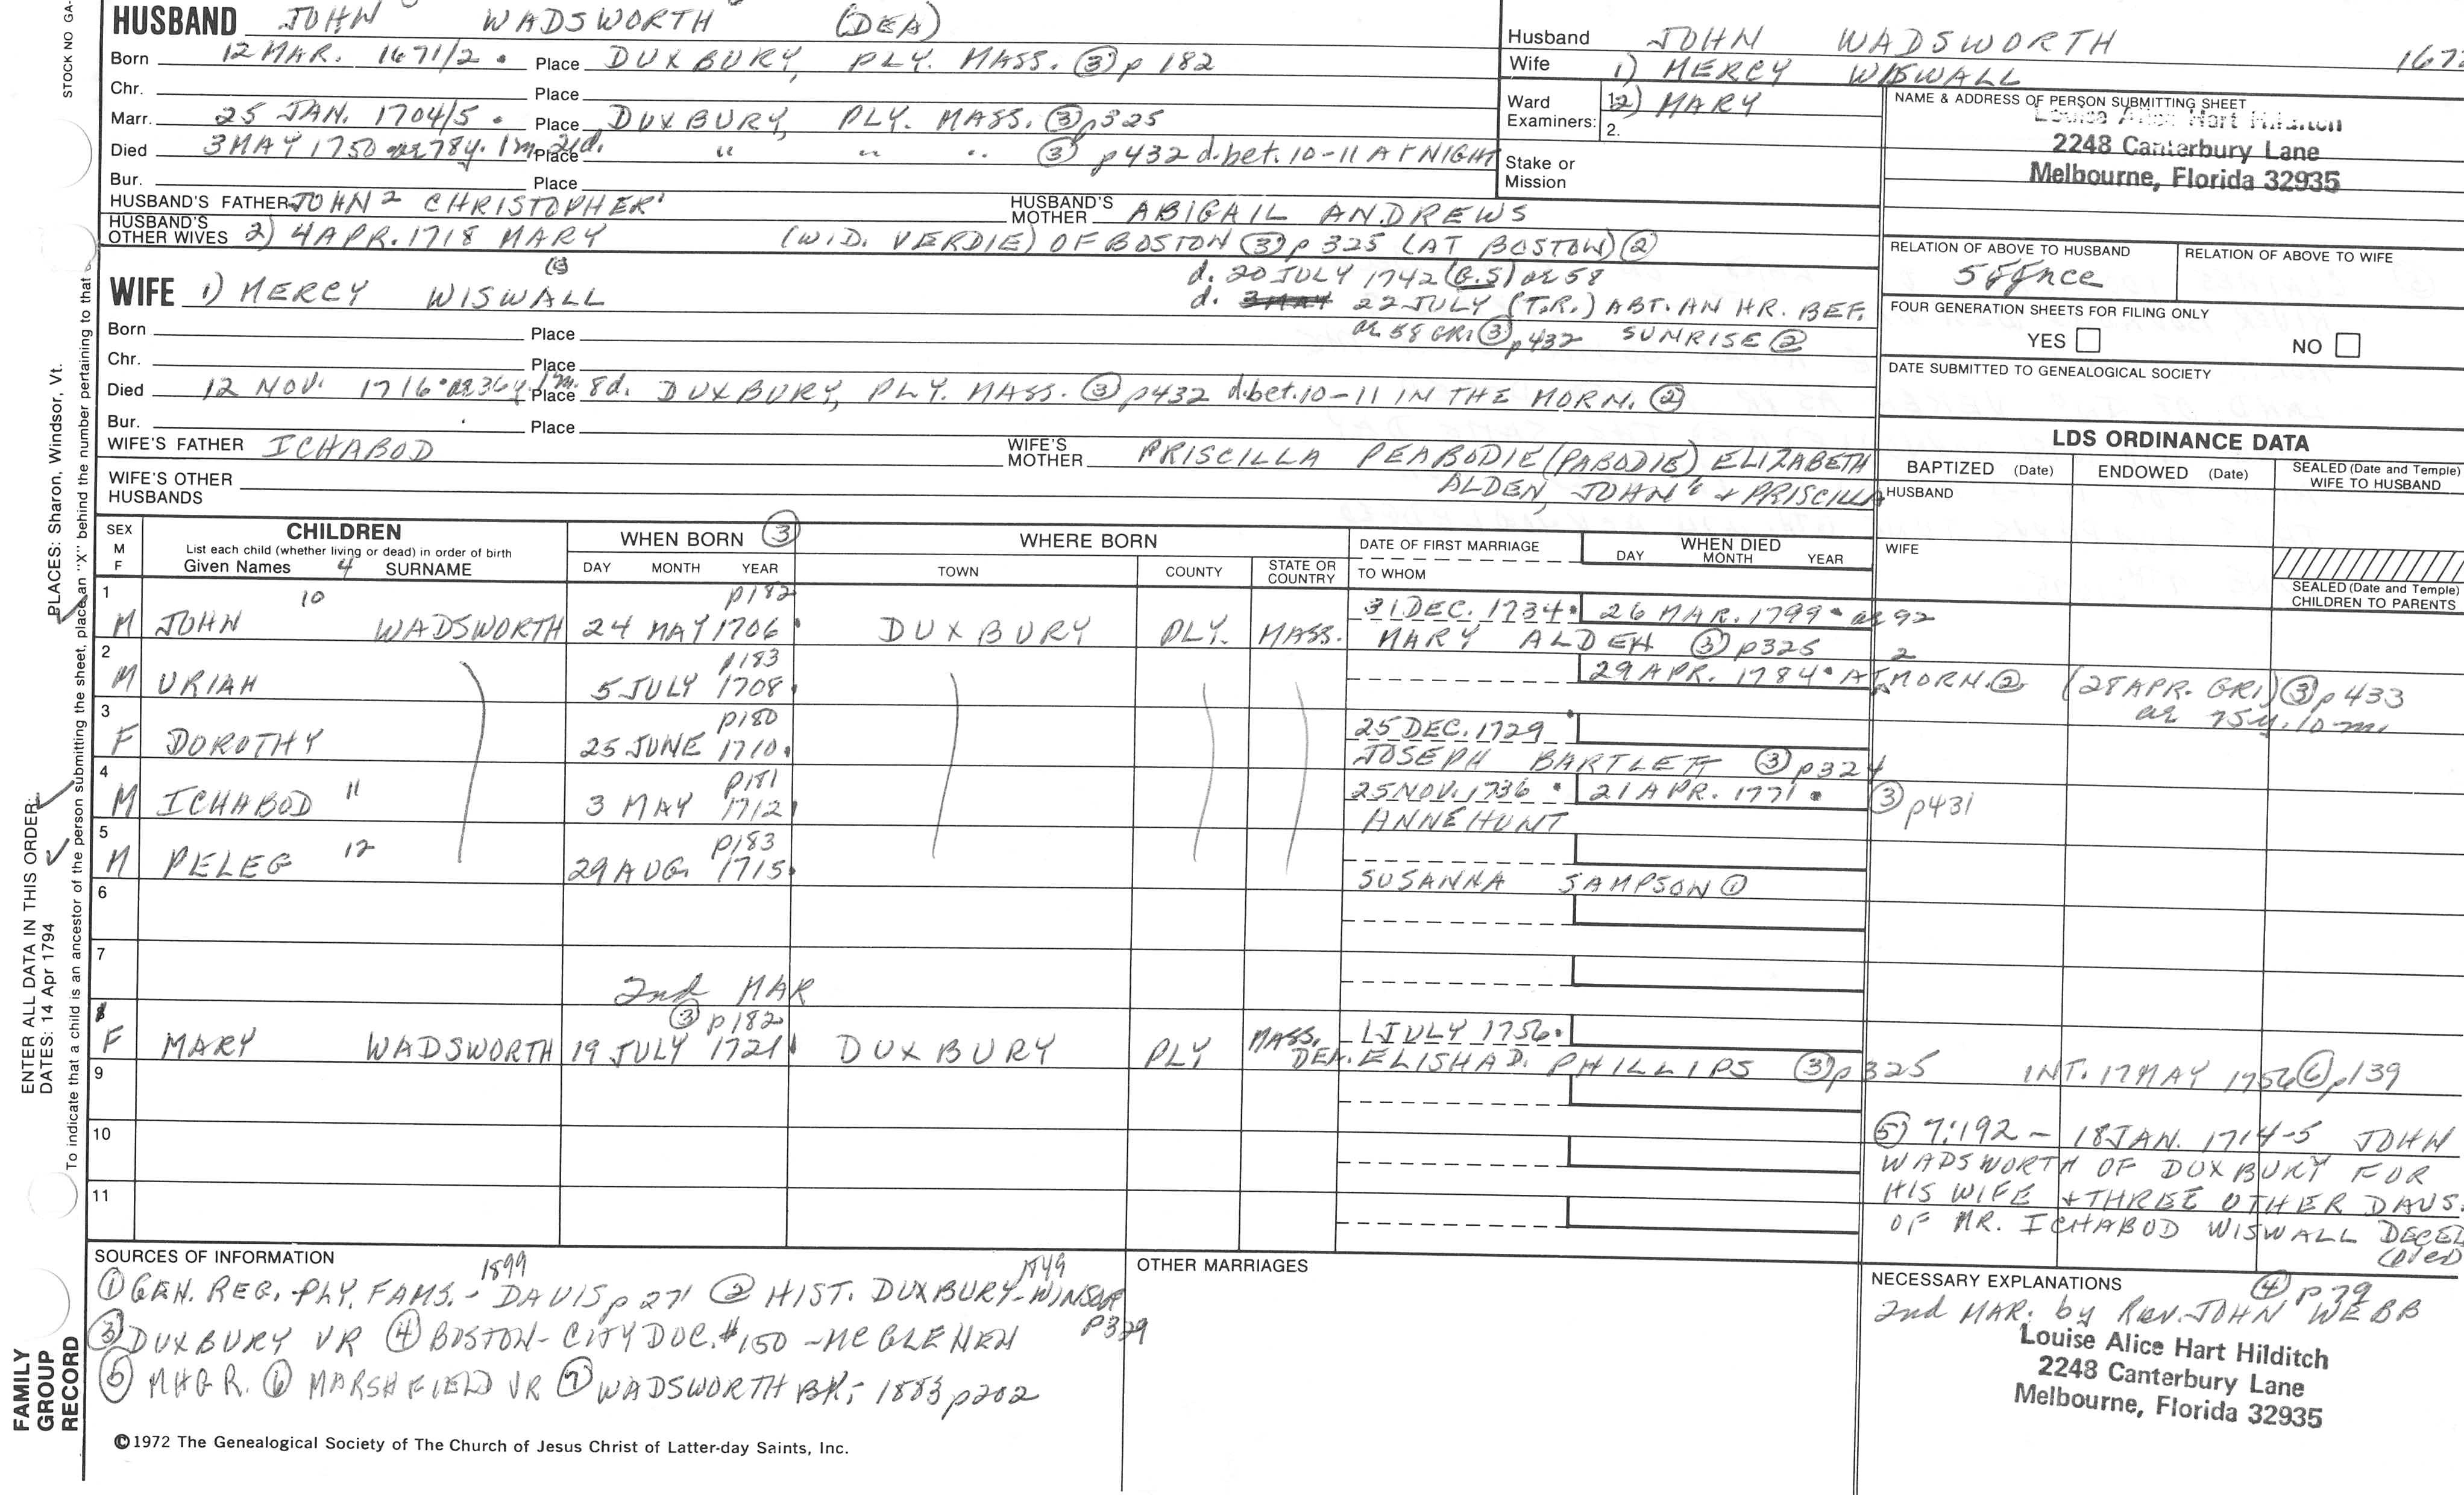 STOCK NO GA-
HUSBAND JOHN WADSWORTH (DEA)
Born 12 MAR. 1671/2 . Place DUXBURY, PLY. MASS. ③ p 182
Chr. Place
Marr. 25 JAN. 1704/5 . Place DUXBURY, PLY. MASS. ③ p325
Died 3 MAY 1750 ae 78y. 1m. 21d. Place " " " ③ p432 d. bet. 10-11 AT NIGHT
Bur. Place
HUSBAND'S FATHER JOHN² CHRISTOPHER¹ HUSBAND'S MOTHER ABIGAIL ANDREWS
HUSBAND'S OTHER WIVES 2) 4 APR. 1718 MARY (WID. VERDIE) OF BOSTON ③ p 325 (AT BOSTON) ②
d. 20 JULY 1742 (G.S) ae 58
d. 3 MAY 22 JULY (T.R.) ABT. AN HR. BEF.
ae 58 GR1 ③ p432 SUNRISE ②
WIFE 1) MERCY WISWALL
Born Place
Chr. Place
Died 12 NOV. 1716 . ae 36y. 1m. 8d. Place DUXBURY, PLY. MASS. ③ p432 d. bet. 10-11 IN THE MORN. ②
Bur. Place
WIFE'S FATHER ICHABOD WIFE'S MOTHER PRISCILLA PEABODIE (PABODIE) ELIZABETH
ALDEN, JOHN & PRISCILLA
WIFE'S OTHER HUSBANDS
Husband JOHN WADSWORTH 167
Wife 1) MERCY WISWALL
Ward Examiners: 1. 2) MARY
2.
Stake or Mission
NAME & ADDRESS OF PERSON SUBMITTING SHEET
Louise Alice Hart Hilditch
2248 Canterbury Lane
Melbourne, Florida 32935
RELATION OF ABOVE TO HUSBAND RELATION OF ABOVE TO WIFE
FOUR GENERATION SHEETS FOR FILING ONLY
YES NO
DATE SUBMITTED TO GENEALOGICAL SOCIETY
LDS ORDINANCE DATA
BAPTIZED (Date) ENDOWED (Date) SEALED (Date and Temple) WIFE TO HUSBAND
HUSBAND
WIFE
SEALED (Date and Temple) CHILDREN TO PARENTS
SEX M F CHILDREN WHEN BORN ③ WHERE BORN DATE OF FIRST MARRIAGE WHEN DIED
List each child (whether living or dead) in order of birth
Given Names 4 SURNAME DAY MONTH YEAR TOWN COUNTY STATE OR COUNTRY TO WHOM DAY MONTH YEAR
1 10 p182 31 DEC. 1734 . 26 MAR. 1799 . ae 92
M JOHN WADSWORTH 24 MAY 1706 . DUXBURY PLY. MASS. MARY ALDEN ③ p325 2
2 p183 29 APR. 1784 . AT MORN. ② (28 APR. GR1) ③ p433
M URIAH 5 JULY 1708 . ae 75y. 10m.
3 p180 25 DEC. 1729
F DOROTHY 25 JUNE 1710 . JOSEPH BARTLETT ③ p324
4 p181 25 NOV. 1736 . 21 APR. 1771 . ③ p431
M ICHABOD 11 3 MAY 1712 ANNE HUNT
5 p183
M PELEG 12 29 AUG. 1715 . SUSANNA SAMPSON ①
6
7
2nd MAR
8 ③ p182 1 JULY 1756 .
F MARY WADSWORTH 19 JULY 1721 DUXBURY PLY MASS. DEA. ELISHA D. PHILLIPS ③ p325 INT. 17 MAY 1756 ⑥ p139
9
10
11
⑤ 7:192 - 18 JAN. 1714-5 JOHN
WADSWORTH OF DUXBURY FOR
HIS WIFE + THREE OTHER DAUS.
OF MR. ICHABOD WISWALL DECED
(DIED)
SOURCES OF INFORMATION
① GEN. REG. PLY. FAMS. - DAVIS 1899 p 271 ② HIST. DUXBURY - WINSOR 1849 p329
③ DUXBURY VR ④ BOSTON - CITY DOC. #150 - MCGLENEN
⑤ MHGR. ⑥ MARSHFIELD VR ⑦ WADSWORTH BK. - 1883 p202
OTHER MARRIAGES
NECESSARY EXPLANATIONS
④ p79
2nd MAR. by Rev. JOHN WEBB
Louise Alice Hart Hilditch
2248 Canterbury Lane
Melbourne, Florida 32935
©1972 The Genealogical Society of The Church of Jesus Christ of Latter-day Saints, Inc.
FAMILY GROUP RECORD
ENTER ALL DATA IN THIS ORDER:
DATES: 14 Apr 1794
PLACES: Sharon, Windsor, Vt.
To indicate that a child is an ancestor of the person submitting the sheet, place an "X" behind the number pertaining to that